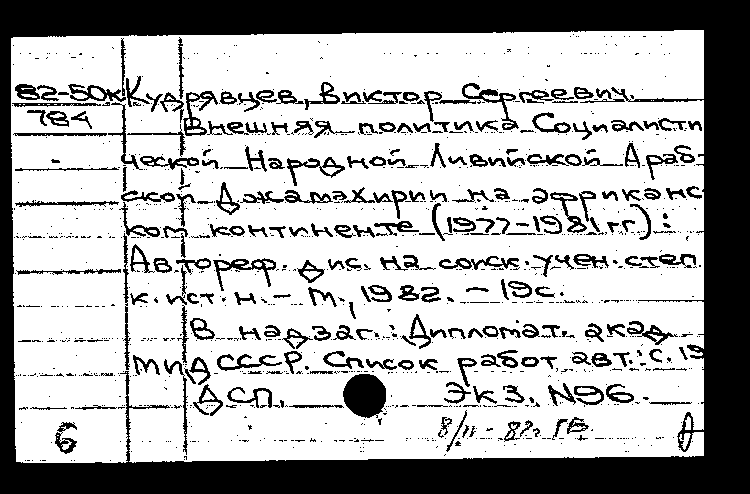 82-50к Кудрявцев, Виктор Сергеевич.
784 Внешняя политика Социалисти
ческой Народной Ливийской Араб-
ской Джамахирии на африканс
ком континенте (1977-1981 гг):
Автореф. дис. на соиск. учен. степ
к. ист. н. - М., 1982. - 19 с.
В надзаг.: Дипломат. акад
МИД СССР. Список работ авт.: с. 19
ДСП. Экз. №96.
6 8/II - 82г ГВ